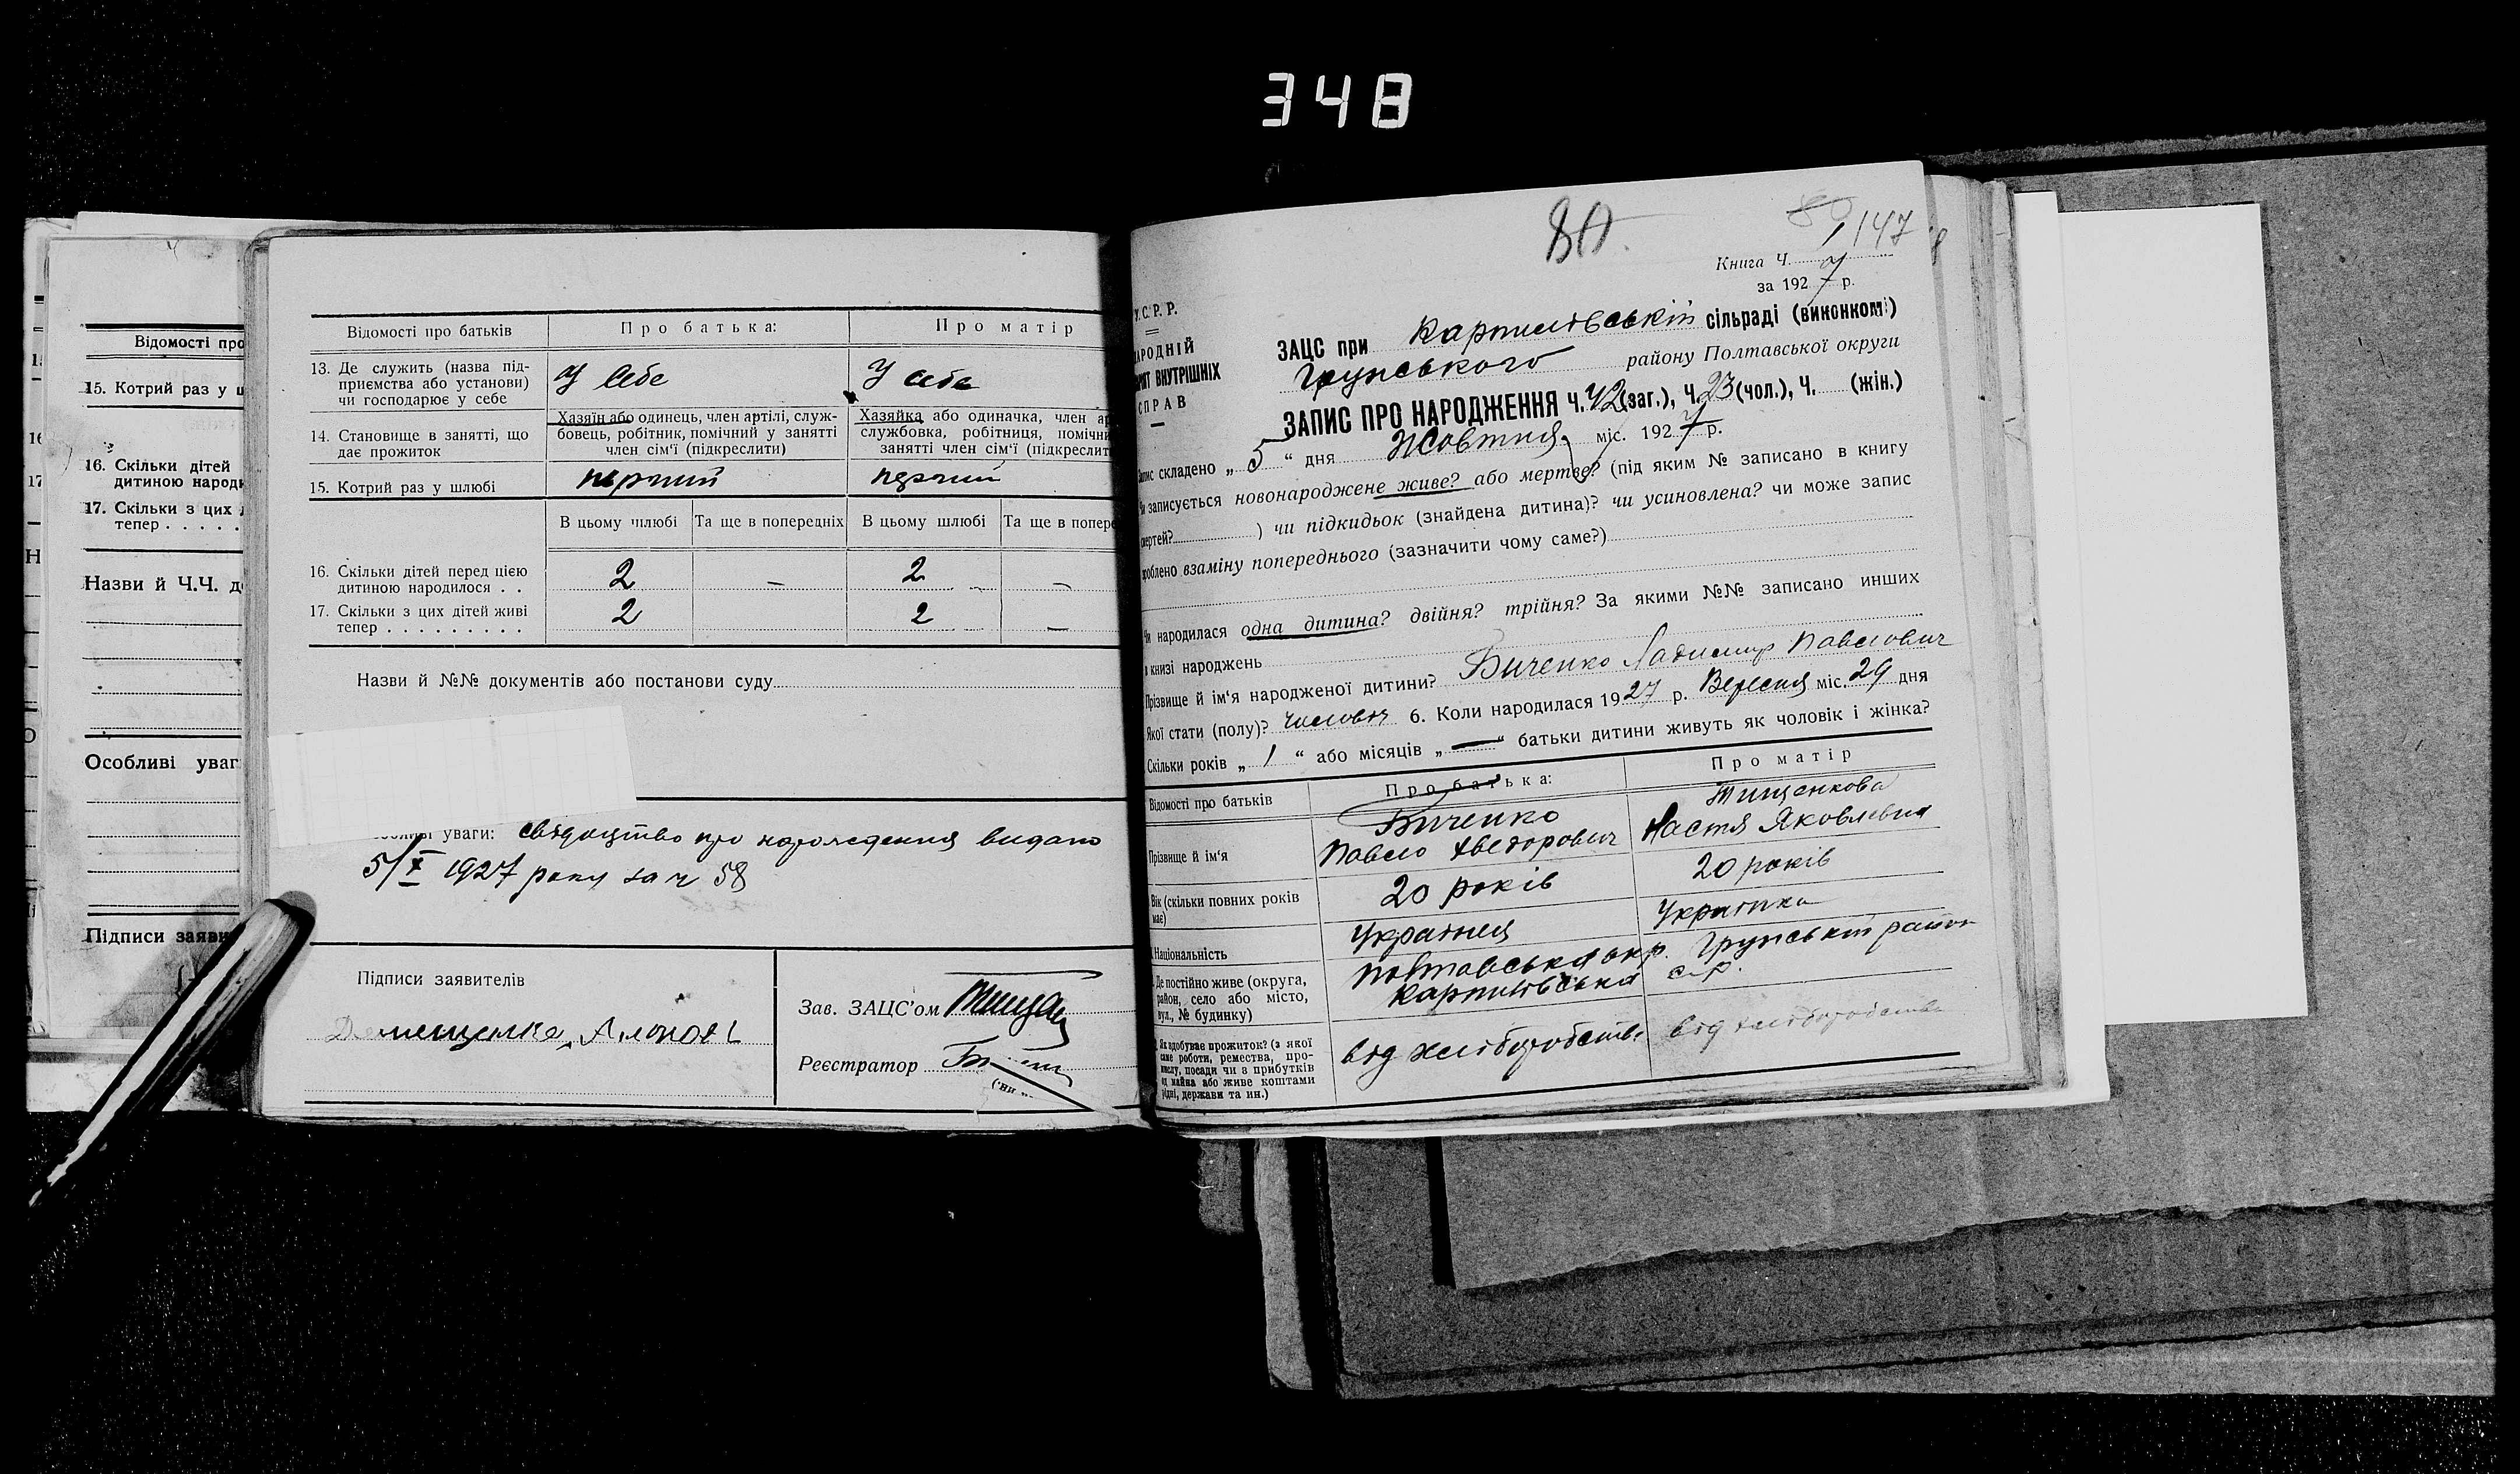 348
Відомості про
15. Котрий раз у ш
16. Скільки дітей
дитиною народ
17. Скільки з цих
тепер . . . . .
Назви й Ч.Ч. д
Особливі уваг
Підписи заяви
Відомості про батьків
Про батька:
Про матір
13. Де служить (назва під-
приємства або установи)
чи господарює у себе
У себе
У себе
14. Становище в занятті, що
дає прожиток
Хазяїн або одинець, член артілі, служ-
бовець, робітник, помічний у занятті
член сім'ї (підкреслити)
Хазяйка або одиначка, член ар
службовка, робітниця, помічн
занятті член сім'ї (підкреслит
15. Котрий раз у шлюбі
перший
перший
В цьому шлюбі
Та ще в попередніх
В цьому шлюбі
Та ще в попере
16. Скільки дітей перед цією
дитиною народилося . .
2 – 2 –
17. Скільки з цих дітей живі
тепер . . . . . . . . .
2 2 –
Назви й №№ документів або постанови суду
уваги: свідоцтво про народження видано
5/X 1927 року за ч 58
Підписи заявителів
Зав. ЗАЦС'ом
Реєстратор
80.
80 147
Книга Ч.
за 1927 р.
У.С.Р.Р.
АРОДНІЙ
ВНУТРІШНІХ
СПРАВ
ЗАЦС при Карпилівській сільраді (виконкомі)
Грунського району Полтавської округи
ЗАПИС ПРО НАРОДЖЕННЯ Ч. 42 (заг.), Ч. 23 (чол.), Ч. (жін.)
Запис складено „ 5 “ дня Жовтня міс. 1927 р.
Чи записується новонароджене живе? або мертве? (під яким № записано в книгу
смертей? ) чи підкидьок (знайдена дитина)? чи усиновлена? чи може запис
зроблено взаміну попереднього (зазначити чому саме?)
Чи народилася одна дитина? двійня? трійня? За якими №№ записано инших
в книзі народжень
Прізвище й ім'я народженої дитини? Биченко Ладимир Павлович
Якої стати (полу)? чоловіч 6. Коли народилася 1927 р. Вересня міс. 29 дня
Скільки років „ 1 “ або місяців „ — “ батьки дитини живуть як чоловік і жінка?
Відомості про батьків
Про батька:
Про матір
Прізвище й ім'я
Биченко
Павло Хведорович
Тищенкова
Настя Яковлевна
Вік (скільки повних років
має)
20 років
20 років
Національність
Українец
Українка
Де постійно живе (округа,
район, село або місто,
вул., № будинку)
Полтавська окр. Грунський район
Карпилівська с-р.
Як здобуває прожиток? (з якої
саме роботи, ремества, про-
мислу, посади чи з прибутків
від майна або живе коштами
рідні, держави та ин.)
від хліборобства
від хліборобства